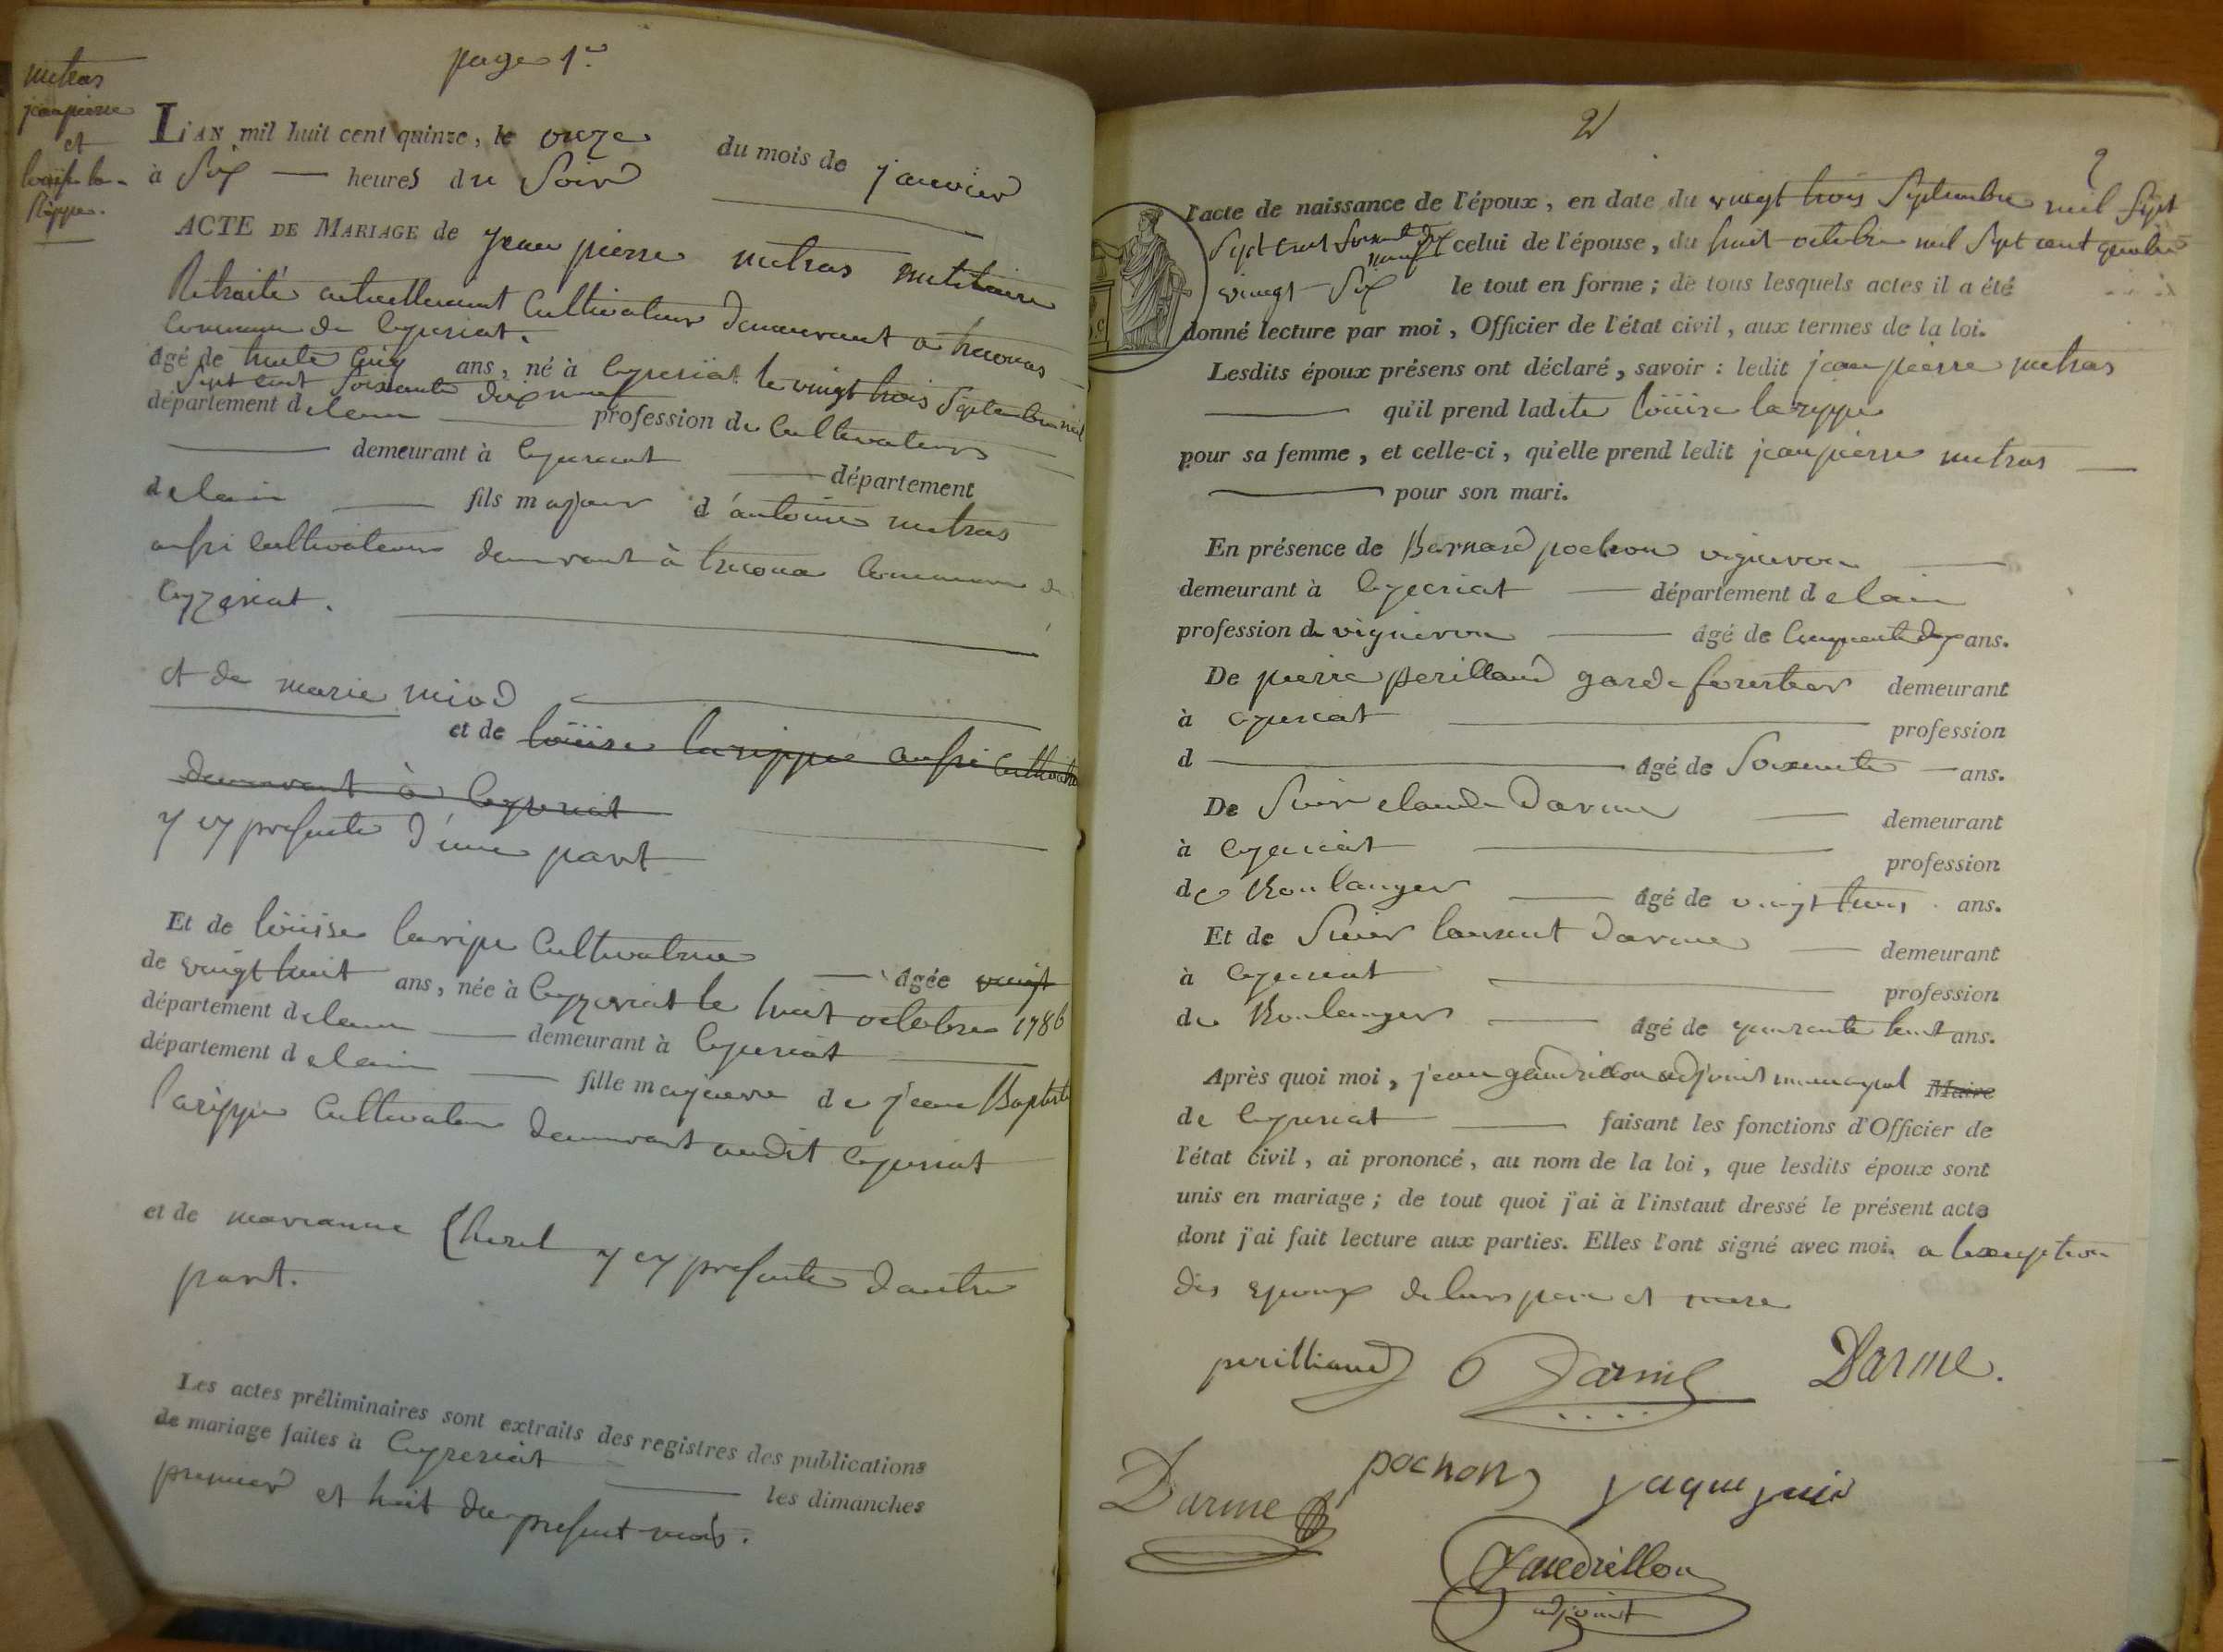 page 1re
metras
jean pierre
et
louise la-
Rippe.
L'AN mil huit cent quinze, le onze du mois de janvier
à Six — heures du Soir
ACTE DE MARIAGE de jean pierre metras militaire
Retraité actuellement Cultivateur demeurant a treconas
Commune de Ceyzeriat.
âgé de trente cinq ans, né à Ceyzeriat le vingt trois Septembre mil
Sept cent Soixante dix neuf
département de lain — profession de Cultivateur
— demeurant à Ceyzeriat — département
de lain — fils majeur d'antoine metras
aussi Cultivateur demeurant à trecona Commune de
Ceyzeriat.
et de marie miod
et de loüise larippe aussi Cultivatrice
demeurant à Ceyzeriat
y cy presente d'une part
Et de loüise laripe Cultivatrice — âgée vingt
de vingt huit ans, née à Ceyzeriat le huit octobre 1786
département de lain — demeurant à Ceyzeriat
département de lain — fille majeure de jean Baptiste
larippe Cultivateur demeurant audit Ceyzeriat
et de marianne Chorel y cy presente dautre
part.
Les actes préliminaires sont extraits des registres des publications
de mariage faites à Ceyzeriat — les dimanches
premier et huit du present mois.
2
2
l'acte de naissance de l'époux, en date du vingt trois Septembre mil Sept
Sept cent Soixante dix
neuf celui de l'épouse, du huit octobre mil Sept cent quatre
vingt — Six le tout en forme; de tous lesquels actes il a été
donné lecture par moi, Officier de l'état civil, aux termes de la loi.
Lesdits époux présens ont déclaré, savoir: ledit jean pierre metras
— qu'il prend ladite loüise larippe
pour sa femme, et celle-ci, qu'elle prend ledit jean pierre metras —
— pour son mari.
En présence de Bernard pochon vigneron
demeurant à Ceyzeriat — département de lain
profession de vigneron — âgé de Cinquante dex ans.
De pierre perilland garde forestier demeurant
à Ceyzeriat — profession
d — âgé de Soixante — ans.
De Sieur claude Darme — demeurant
à Ceyzeriat — profession
de Boulanger — âgé de vingt trois ans.
Et de Sieur laurent Darme — demeurant
à Ceyzeriat — profession
de Boulanger — âgé de quarante huit ans.
Après quoi moi, jean gaudrillon adjoint municipal Maire
de Ceyzeriat — faisant les fonctions d'Officier de
l'état civil, ai prononcé, au nom de la loi, que lesdits époux sont
unis en mariage; de tout quoi j'ai à l'instaut dressé le présent acte
dont j'ai fait lecture aux parties. Elles l'ont signé avec moi. a lexeption
des epoux de leurs pere et mere
perilliand Darme Darme.
Darme pochon jaquemin
Gaudrillon
adjoint